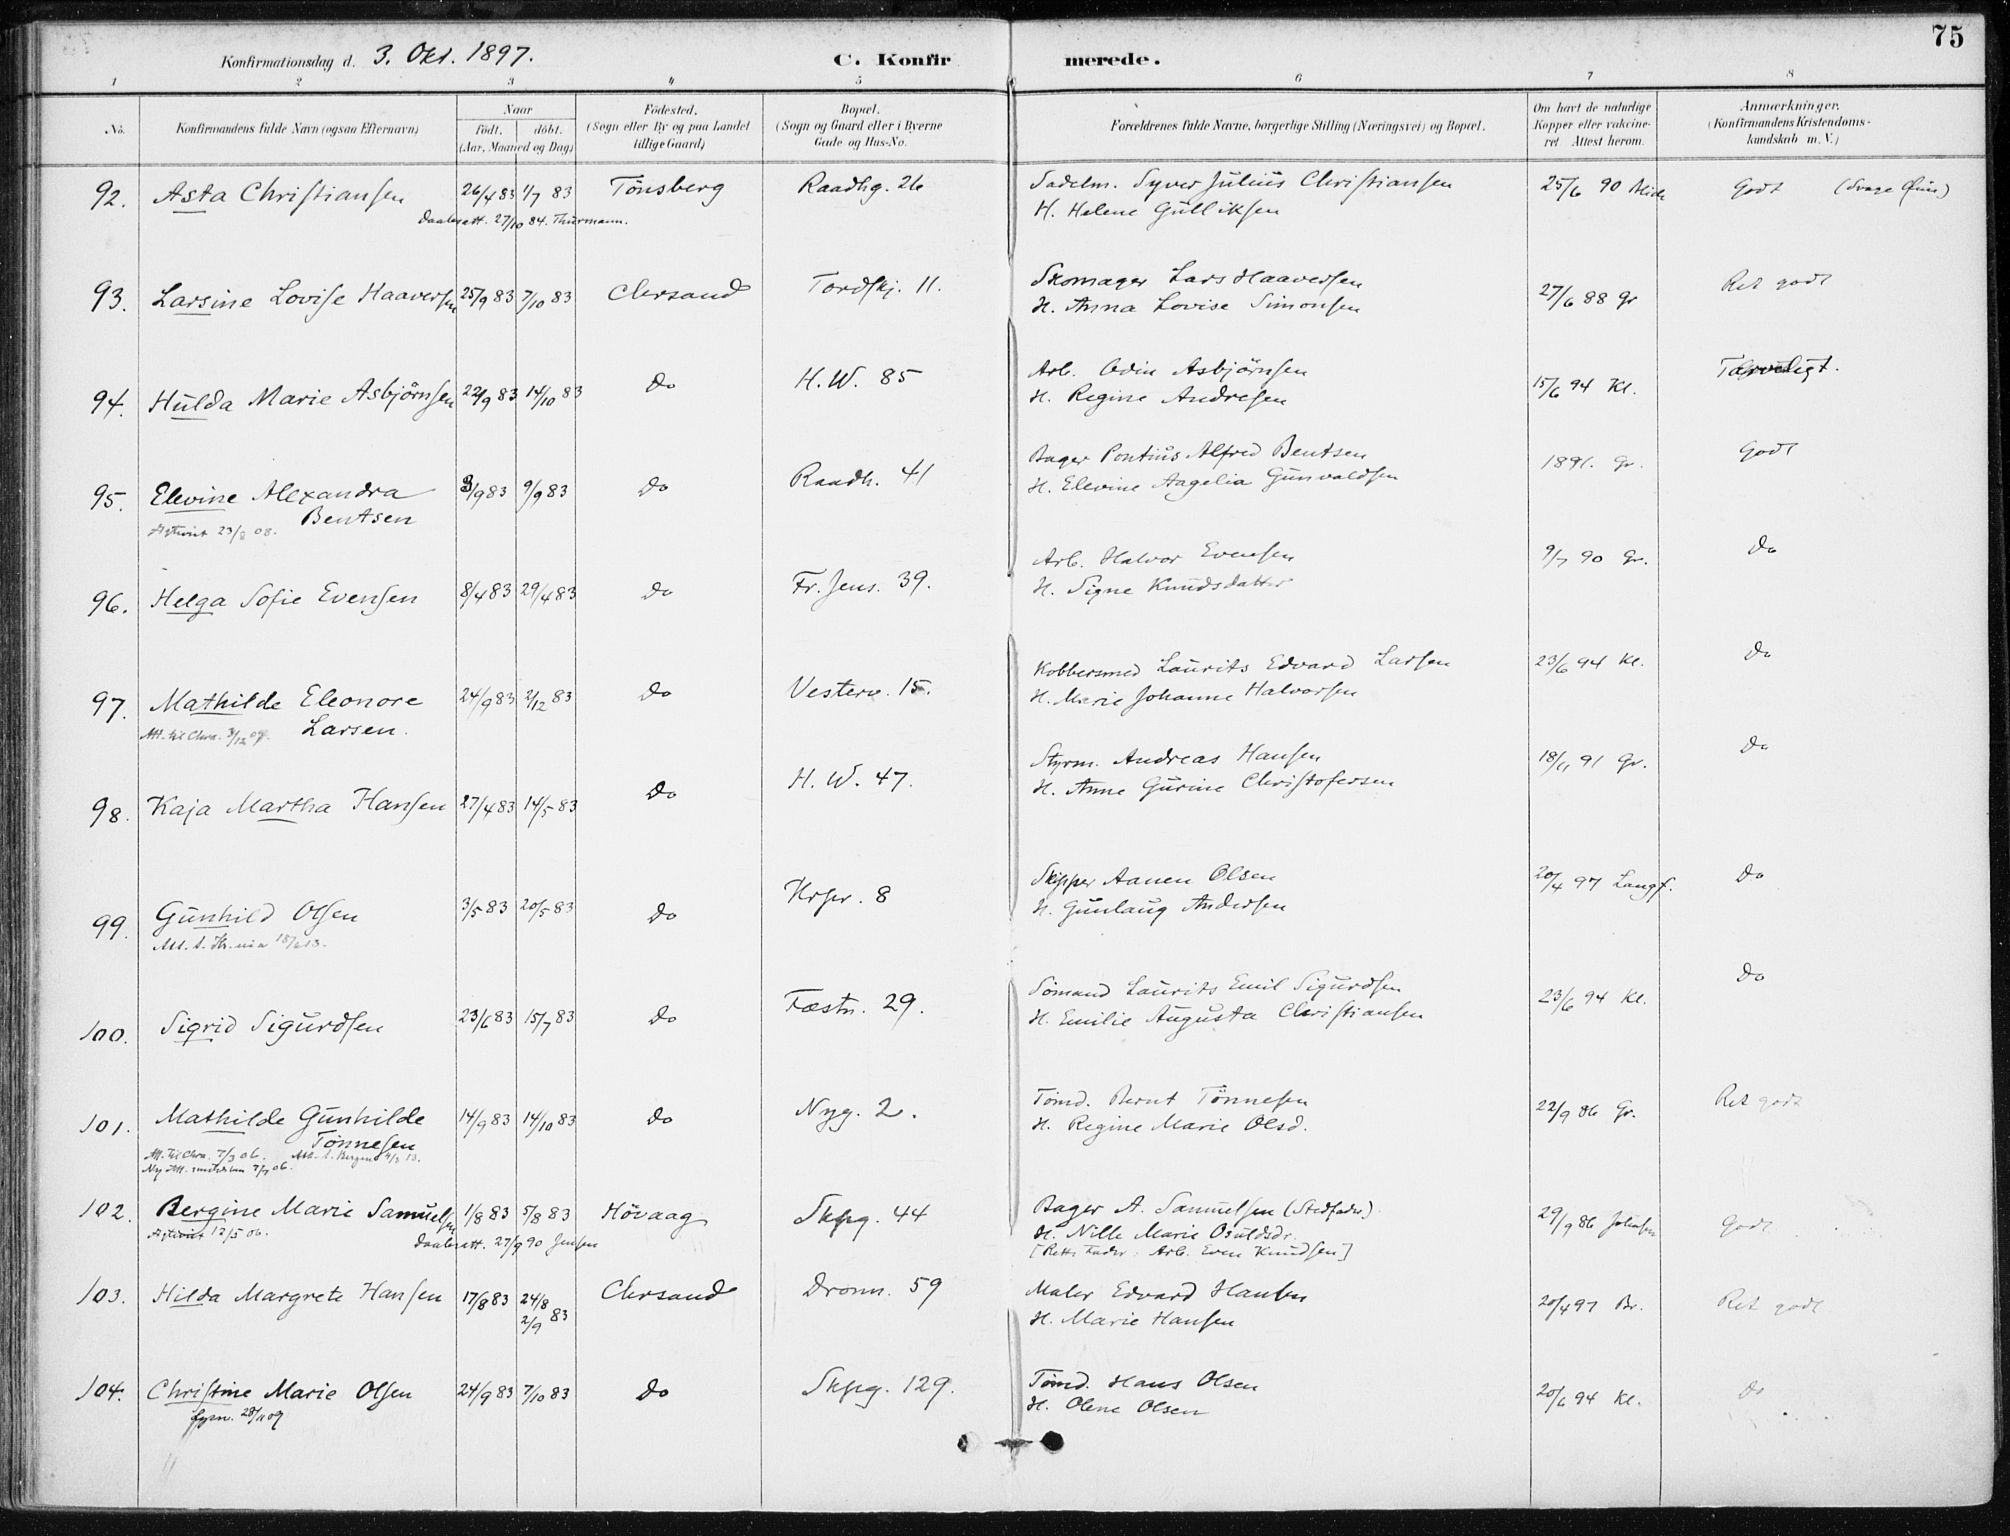 75
Konfirmationsdag d. 3. Okt. 1897.
C. Konfirmerede.
1 2 3 4 5 6 7 8
No. Konfirmandens fulde Navn (ogsaa Efternavn)
Naar
født. døbt.
(Aar, Maaned og Dag)
Fødested.
(Sogn eller By og paa Landet
tillige Gaard)
Bopæl.
(Sogn og Gaard eller i Byerne
Gade og Hus-No.
Forældrenes fulde Navne, borgerlige Stilling (Næringsvei) og Bopæl.
Om havt de naturlige
Kopper eller vakcine-
ret Attest herom.
Anmærkninger.
(Konfirmandens Kristendoms-
kundskab m. V.)
92. Asta Christiansen 26/4 83 1/7 83 Tönsberg Raadhg. 26 Sadelm. Syver Julius Christiansen 25/6 90 Godt (Svage Øine)
H. Helene Gulliksen
Daabsatt. 27/10 84. Thurmann.
93. Larsine Lovise Haaversen 25/9 83 7/10 83 Chrsand Tordskj. 11. Skomager Lars Haaversen 27/6 88 Gr Ret godt
H. Anna Lovise Simonsen
94. Hulda Marie Asbjörnsen 22/9 83 14/10 83 Do H. W. 85 Arb. Odin Asbjörnsen 15/6 94 Kl. Tarveligt.
H. Regine Andresen
95. Elevine Alexandra 3/9 83 9/9 83 Do Raadh. 41 Bager Pontius Alfred Bentsen 1891. Gr. Godt
Bentsen H. Elevine Aagelia Gunvaldsen
23/8 08.
96. Helga Sofie Evensen 8/4 83 29/4 83 Do Fr. Jens. 39. Arb. Halvor Evensen 9/7 90 Gr. Do
H. Signe Knudsdatter
97. Mathilde Eleonore 24/9 83 2/12 83 Do Vesterv. 15. Kobbersmed Laurits Edvard Larsen 23/6 94 Kl. Do
Larsen. H. Marie Johanne Halvorsen
Att. til Chra. 3/12 09.
98. Kaja Martha Hansen 27/4 83 14/5 83 Do H. W. 47. Styrm. Andreas Hansen 18/11 91 Gr. Do
H. Anne Gurine Christofersen
99. Gunhild Olsen 3/5 83 20/5 83 Do Krpr. 8 Skipper Aanen Olsen 20/4 97 Langf. Do
H. Gunlaug Andersen
Att. t. Kr.nia
100. Sigrid Sigurdsen 23/6 83 15/7 83 Do Fæstn. 29. Sömand Laurits Emil Sigurdsen 23/6 94 Kl. Do
H. Emilie Augusta Christiansen
101. Mathilde Gunhilde 14/9 83 14/10 83 Do Nyg. 2. Tömd. Bernt Tönnesen 22/9 86 Gr. Ret godt
Tönnesen H. Regine Marie Olsd.
Att. til Chra. 7/3 06. Att. t. Bergen 4/3 13.
Ny Att. 7/7 06.
102. Bergine Marie Samuelsen 1/8 83 5/8 83 Hövaag Skpg. 44 Bager A. Samuelsen (Stedfader) 29/9 86 Johnsen Godt
12/5 06. H. Nille Marie Osuldsdr.
Daabsatt. 27/9 90 Jensen [Rette Fader: Arb. Even Knudsen]
103. Hilda Margrete Hansen 17/8 83 24/8 2/9 83 Chrsand Dronn. 59 Maler Edvard Hansen 20/4 97 Br. Ret godt
H. Marie Hansen
104. Christine Marie Olsen 24/9 83 7/10 83 Do Skpg. 129. Tömd. Hans Olsen 20/6 94 Kl. Do
H. Olene Olsen